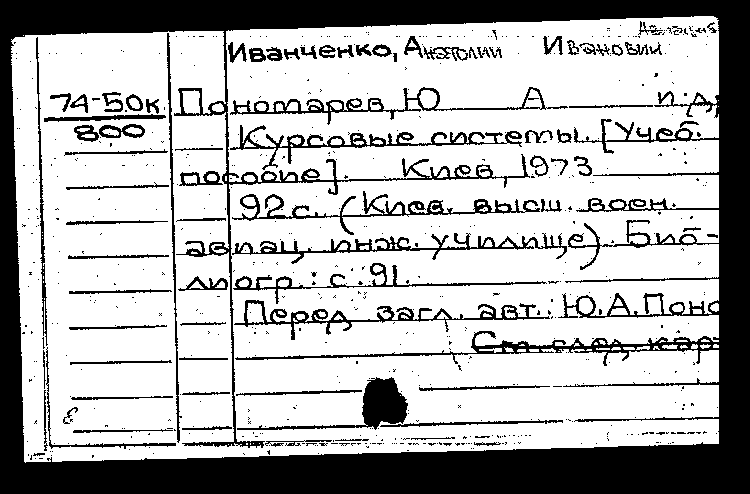 Авиация
Иванченко, Анатолий Иванович
74-50к Пономарев, Ю А и д
800 Курсовые системы. [Учеб.
пособие]. Киев, 1973
92 с. (Киев. высш. воен.
авиац. инж. училище). Биб-
лиогр.: с. 91.
Перед загл. авт.: Ю.А. Поно
См. след. кар